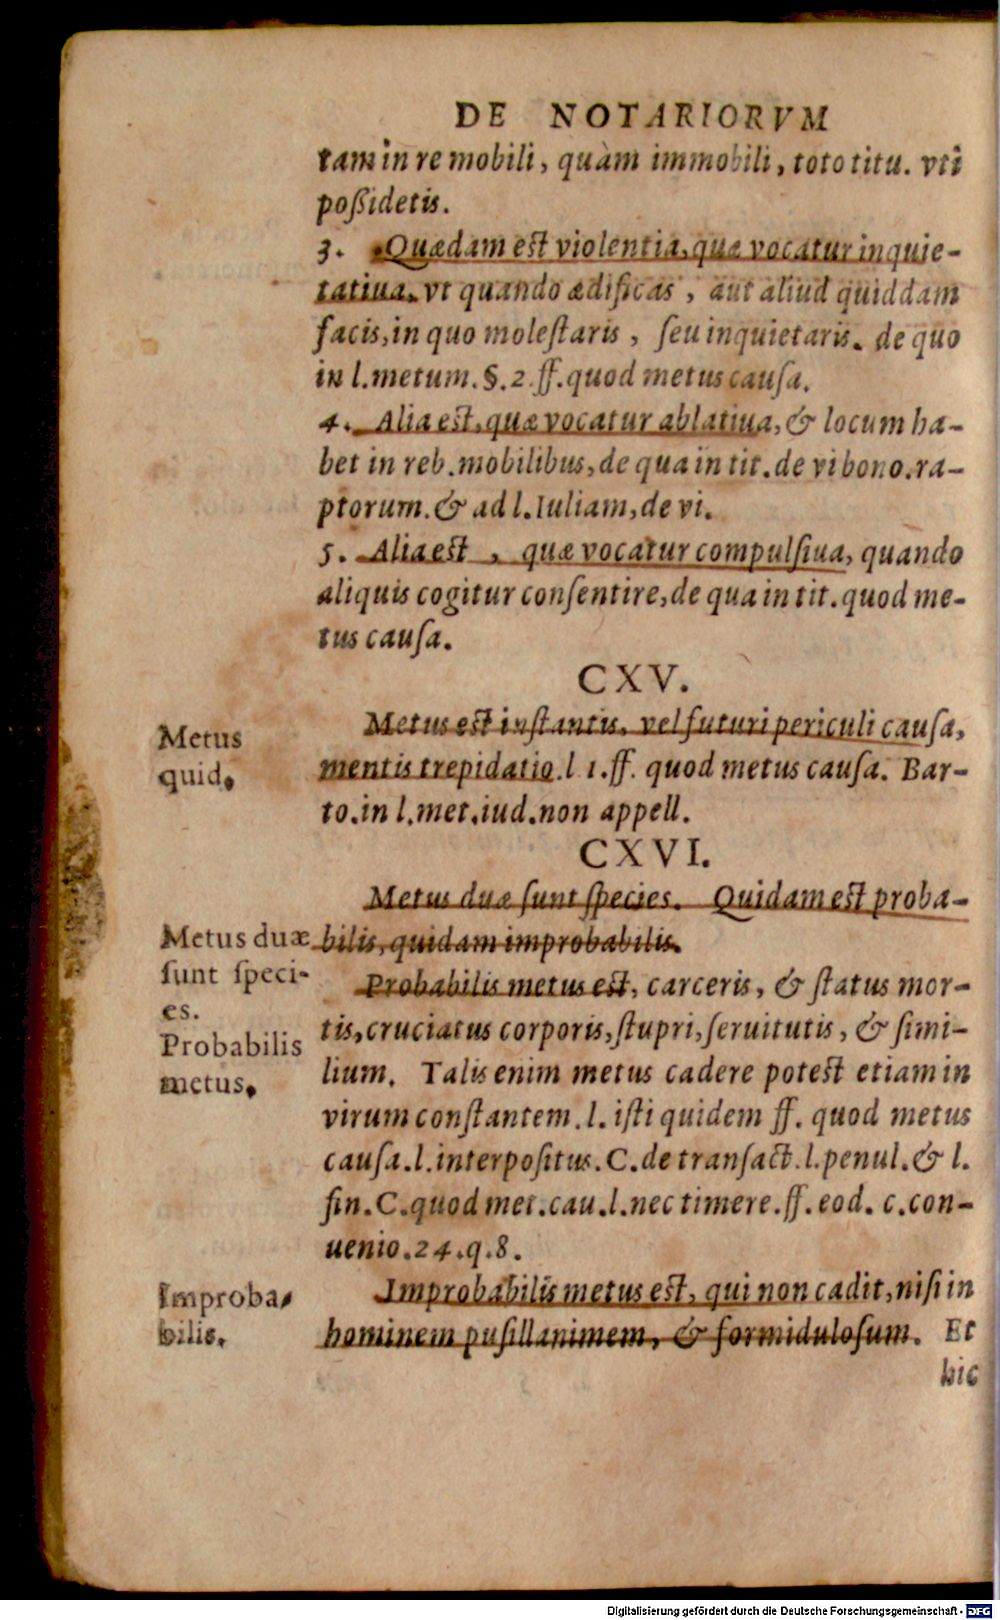 DE NOTARIORVM
tam in re mobili, quàm immobili, toto titu. vti
poßidetis.
3. Quædam est violentia, quæ vocatur inquie-
tatiua, vt quando ædificas, aut aliud quiddam
facis, in quo molestaris, seu inquietaris. de quo
in l. metum. §. 2. ff. quod metus causa.
4. Alia est, quæ vocatur ablatiua, & locum ha-
bet in reb. mobilibus, de qua in tit. de vi bono. ra-
ptorum. & ad l. Iuliam, de vi.
5. Alia est, quæ vocatur compulsiua, quando
aliquis cogitur consentire, de qua in tit. quod me-
tus causa.
CXV.
Metus
quid.
Metus est instantis, vel futuri periculi causa,
mentis trepidatio. l 1. ff. quod metus causa. Bar-
to. in l. met. iud. non appell.
CXVI.
Metus duæ sunt species. Quidam est proba-
bilis, quidam improbabilis.
Metus duæ
sunt speci-
es.
Probabilis
metus.
Probabilis metus est, carceris, & status mor-
tis, cruciatus corporis, stupri, seruitutis, & simi-
lium. Talis enim metus cadere potest etiam in
virum constantem. l. isti quidem ff. quod metus
causa. l. interpositus. C. de transact. l. penul. & l.
fin. C. quod met. cau. l. nec timere. ff. eod. c. con-
uenio. 24. q. 8.
Improba-
bilis.
Improbabilis metus est, qui non cadit, nisi in
hominem pusillanimem, & formidulosum. Et
hic
Digitalisierung gefördert durch die Deutsche Forschungsgemeinschaft - DFG